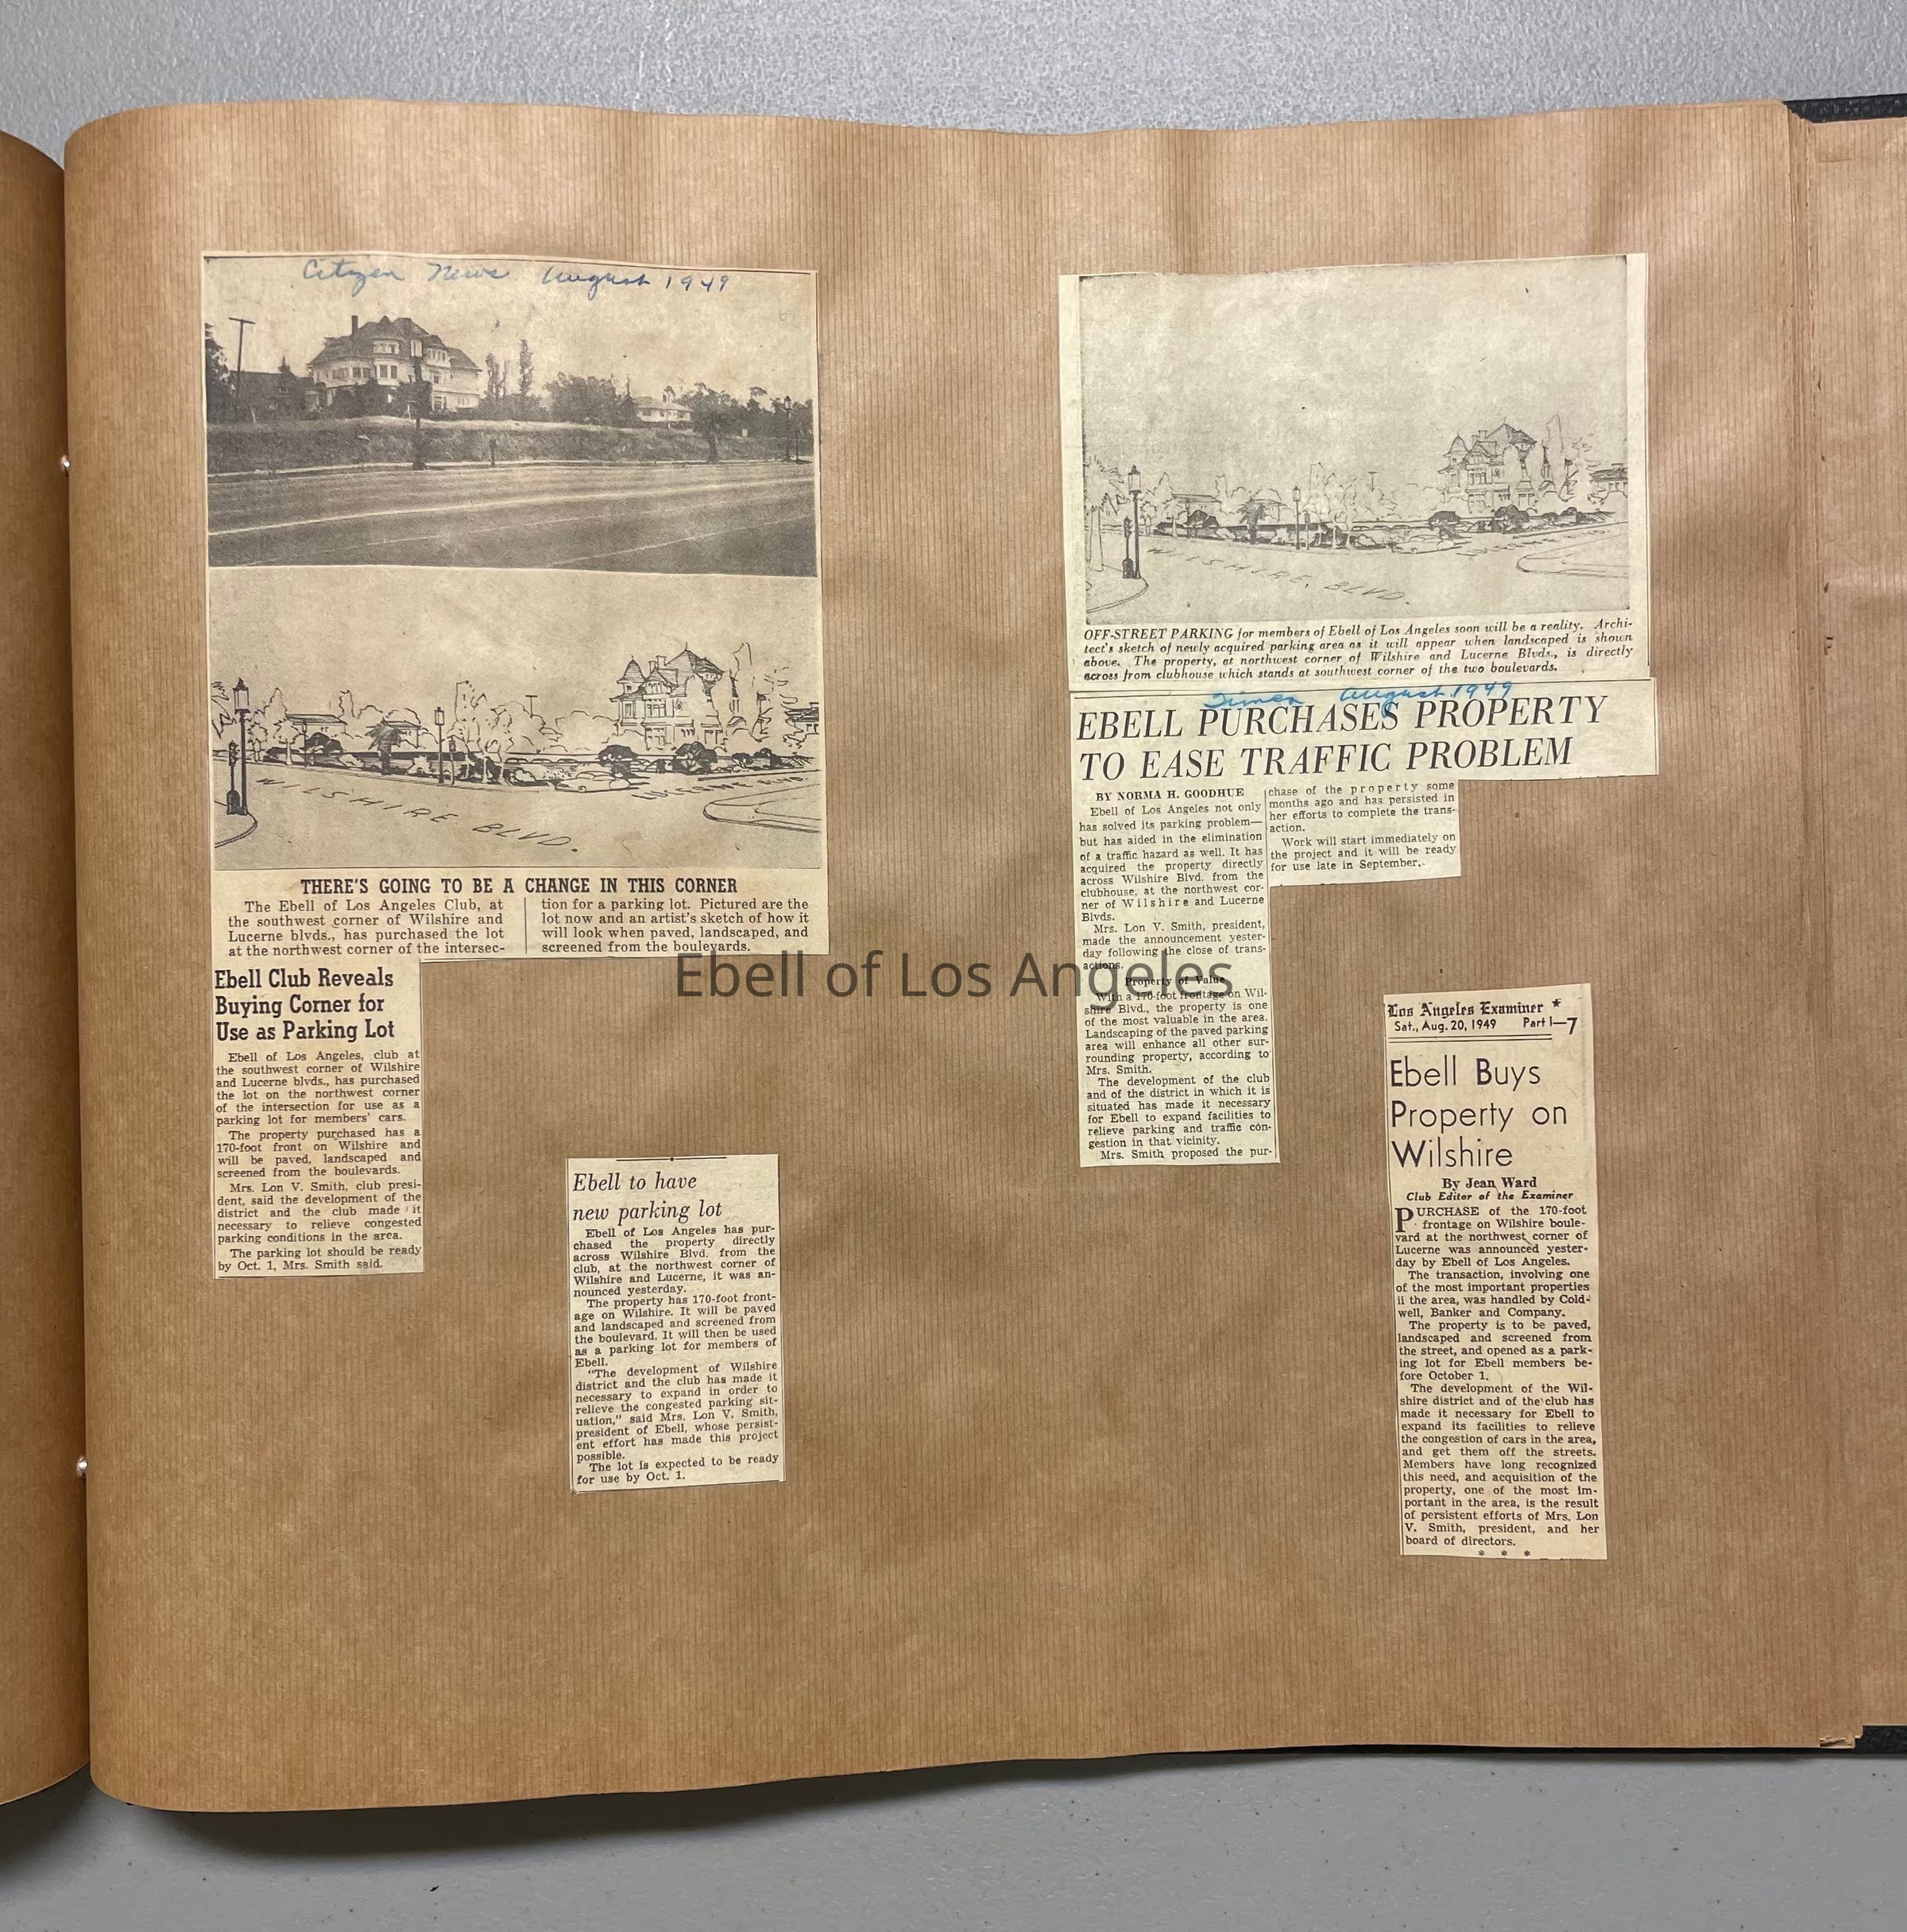 Citizen News August 1949
WILSHIRE BLVD.
LUCERNE BLVD
THERE'S GOING TO BE A CHANGE IN THIS CORNER
The Ebell of Los Angeles Club, at
the southwest corner of Wilshire and
Lucerne blvds., has purchased the lot
at the northwest corner of the intersec-
tion for a parking lot. Pictured are the
lot now and an artist's sketch of how it
will look when paved, landscaped, and
screened from the boulevards.
Ebell Club Reveals
Buying Corner for
Use as Parking Lot
Ebell of Los Angeles, club at
the southwest corner of Wilshire
and Lucerne blvds., has purchased
the lot on the northwest corner
of the intersection for use as a
parking lot for members' cars.
The property purchased has a
170-foot front on Wilshire and
will be paved, landscaped and
screened from the boulevards.
Mrs. Lon V. Smith, club presi-
dent, said the development of the
district and the club made it
necessary to relieve congested
parking conditions in the area.
The parking lot should be ready
by Oct. 1, Mrs. Smith said.
Ebell to have
new parking lot
Ebell of Los Angeles has pur-
chased the property directly
across Wilshire Blvd. from the
club, at the northwest corner of
Wilshire and Lucerne, it was an-
nounced yesterday.
The property has 170-foot front-
age on Wilshire. It will be paved
and landscaped and screened from
the boulevard. It will then be used
as a parking lot for members of
Ebell.
"The development of Wilshire
district and the club has made it
necessary to expand in order to
relieve the congested parking sit-
uation," said Mrs. Lon V. Smith,
president of Ebell, whose persist-
ent effort has made this project
possible.
The lot is expected to be ready
for use by Oct. 1.
WILSHIRE. BLVD.
OFF-STREET PARKING for members of Ebell of Los Angeles soon will be a reality. Archi-
tect's sketch of newly acquired parking area as it will appear when landscaped is shown
above. The property, at northwest corner of Wilshire and Lucerne Blvds., is directly
across from clubhouse which stands at southwest corner of the two boulevards.
Times August 1949
EBELL PURCHASES PROPERTY
TO EASE TRAFFIC PROBLEM
BY NORMA H. GOODHUE
Ebell of Los Angeles not only
has solved its parking problem—
but has aided in the elimination
of a traffic hazard as well. It has
acquired the property directly
across Wilshire Blvd. from the
clubhouse, at the northwest cor-
ner of Wilshire and Lucerne
Blvds.
Mrs. Lon V. Smith, president,
made the announcement yester-
day following the close of trans-
actions.
Property of Value
With a 170-foot frontage on Wil-
shire Blvd., the property is one
of the most valuable in the area.
Landscaping of the paved parking
area will enhance all other sur-
rounding property, according to
Mrs. Smith.
The development of the club
and of the district in which it is
situated has made it necessary
for Ebell to expand facilities to
relieve parking and traffic con-
gestion in that vicinity.
Mrs. Smith proposed the pur-
chase of the property some
months ago and has persisted in
her efforts to complete the trans-
action.
Work will start immediately on
the project and it will be ready
for use late in September.
Ebell of Los Angeles
Los Angeles Examiner *
Sat., Aug. 20, 1949 Part I—7
Ebell Buys
Property on
Wilshire
By Jean Ward
Club Editor of the Examiner
PURCHASE of the 170-foot
frontage on Wilshire boule-
vard at the northwest corner of
Lucerne was announced yester-
day by Ebell of Los Angeles.
The transaction, involving one
of the most important properties
ii the area, was handled by Cold-
well, Banker and Company.
The property is to be paved,
landscaped and screened from
the street, and opened as a park-
ing lot for Ebell members be-
fore October 1.
The development of the Wil-
shire district and of the club has
made it necessary for Ebell to
expand its facilities to relieve
the congestion of cars in the area,
and get them off the streets.
Members have long recognized
this need, and acquisition of the
property, one of the most im-
portant in the area, is the result
of persistent efforts of Mrs. Lon
V. Smith, president, and her
board of directors.
* * *